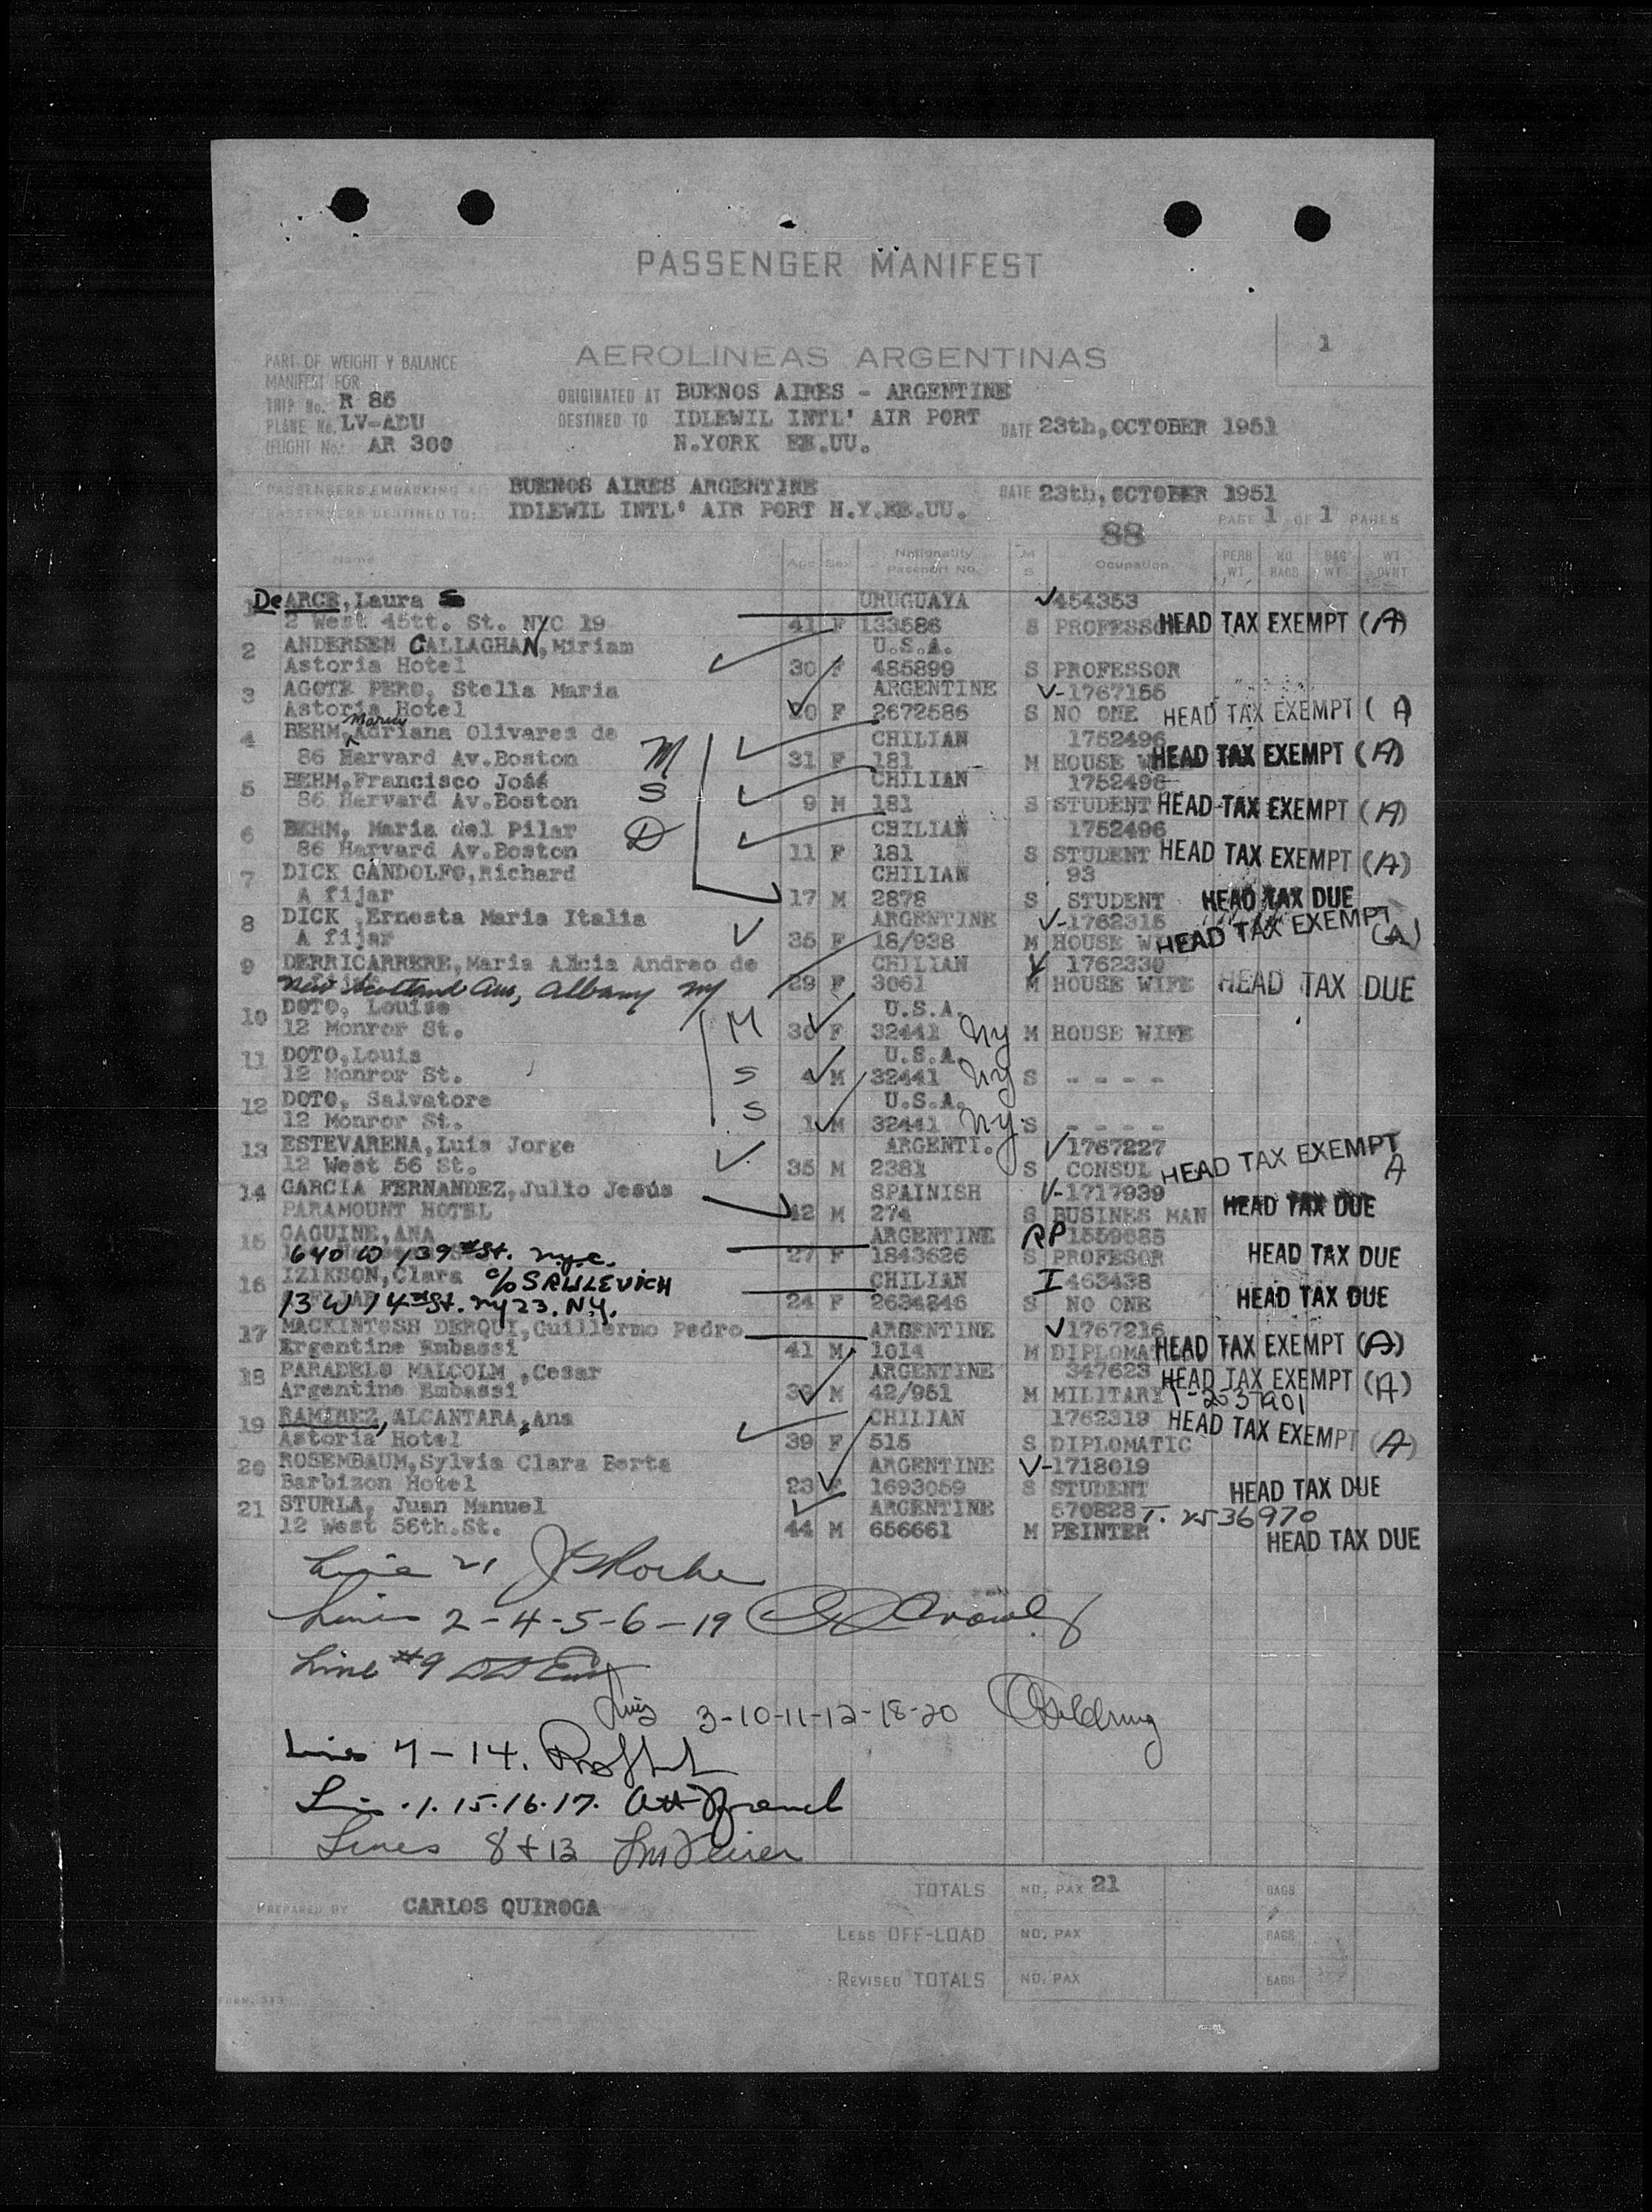 PASSENGER MANIFEST
1
AEROLINEAS ARGENTINAS
PART OF WEIGHT Y BALANCE
MANIFEST FOR
TRIP No. R 85
PLANE No. LV-ADU
(FLIGHT No.: AR 309
ORIGINATED AT BUENOS AIRES - ARGENTINE
DESTINED TO IDLEWIL INTL' AIR PORT
N.YORK EE.UU.
DATE 23th,OCTOBER 1951
PASSENGERS EMBARKING BUENOS AIRES ARGENTINE DATE 23th,OCTOBER 1951
PASSENGERS DESTINED TO: IDLEWIL INTL' AIR PORT N.Y.EE.UU. PAGE 1 OF 1 PAGES
88
Name Age Sex Nationality Passport No. M S Ocupation PERB WT NO BAGS BAG WT WT OVHT
1 De ARCE, Laura URUGUAYA 454353
2 West 45tt. St. NYC 19 41 F 133586 S PROFESSO HEAD TAX EXEMPT (A)
2 ANDERSEN CALLAGHAN, Miriam U.S.A.
Astoria Hotel 30 F 485899 S PROFESSOR
3 AGOTE PERO, Stella Maria ARGENTINE V-1767155
Astoria Hotel 20 F 2672586 S NO ONE HEAD TAX EXEMPT ( A
4 BEHM, Adriana Olivares de CHILIAN 1752496
86 Harvard Av.Boston M 31 F 181 M HOUSE W HEAD TAX EXEMPT (A)
5 BEHM,Francisco José CHILIAN 1752496
86 Harvard Av.Boston S 9 M 181 S STUDENT HEAD TAX EXEMPT (A)
6 BEHM, Maria del Pilar CHILIAN 1752496
86 Harvard Av.Boston D 11 F 181 S STUDENT HEAD TAX EXEMPT (A)
7 DICK GANDOLFO,Richard CHILIAN 93
A fijar 17 M 2878 S STUDENT HEAD TAX DUE
8 DICK ,Ernesta Maria Italia ARGENTINE V-1762315
A fijar 35 F 18/938 M HOUSE W HEAD TAX EXEMPT (A)
9 DERRICARRERE,Maria Alicia Andreo de CHILIAN V 1762330
New Scotland Ave, Albany NY 29 F 3061 M HOUSE WIFE HEAD TAX DUE
10 DOTO, Louise U.S.A.
12 Monror St. M 30 F 32441 NY M HOUSE WIFE
11 DOTO,Louis U.S.A.
12 Monror St. S 4 M 32441 NY S - - - -
12 DOTO, Salvatore U.S.A.
12 Monror St. S 1 M 32441 NY. S - - - -
13 ESTEVARENA,Luis Jorge ARGENTI. V 1767227
12 West 56 St. 35 M 2381 S CONSUL HEAD TAX EXEMPT A
14 GARCIA FERNANDEZ,Julio Jesús SPAINISH V-1717939
PARAMOUNT HOTEL 42 M 274 S BUSINES MAN HEAD TAX DUE
15 GAGUINE,ANA ARGENTINE RP 1559685
640 W 139 St. N.Y.C. 27 F 1843626 S PROFESOR HEAD TAX DUE
16 IZIKSON,Clara c/o SRULEVICH CHILIAN I 463438
13 W 74 St. NY 23. N.Y. 24 F 2634846 S NO ONE HEAD TAX DUE
17 MACKINTOSH DERQUI,Guillermo Pedro ARGENTINE V 1767216
Ergentine Embassi 41 M 1014 M DIPLOMA HEAD TAX EXEMPT (A)
18 PARADELO MALCOLM ,Cesar ARGENTINE 347623 HEAD TAX EXEMPT (A)
Argentine Embassi M 42/951 M MILITARY 1-2537901
19 RAMIREZ, ALCANTARA,Ana CHILIAN 1762319 HEAD TAX EXEMPT (A)
Astoria Hotel 39 F 515 S DIPLOMATIC
20 ROSEMBAUM,Sylvia Clara Berta ARGENTINE V-1718019
Barbizon Hotel 23 F 1693059 S STUDENT HEAD TAX DUE
21 STURLA, Juan Manuel ARGENTINE 570828 T. 2536970
12 West 56th.St. 44 M 656661 M PEINTER HEAD TAX DUE
Line 21
Lines 2-4-5-6-19
Line #9
Lines 3-10-11-12-18-20
Lines 7-14.
Lines .1.15.16.17.
Lines 8 + 13
PREPARED BY CARLOS QUIROGA
TOTALS NO. PAX 21 BAGS
LESS OFF-LOAD NO. PAX BAGS
REVISED TOTALS NO. PAX BAGS
FORM. 313